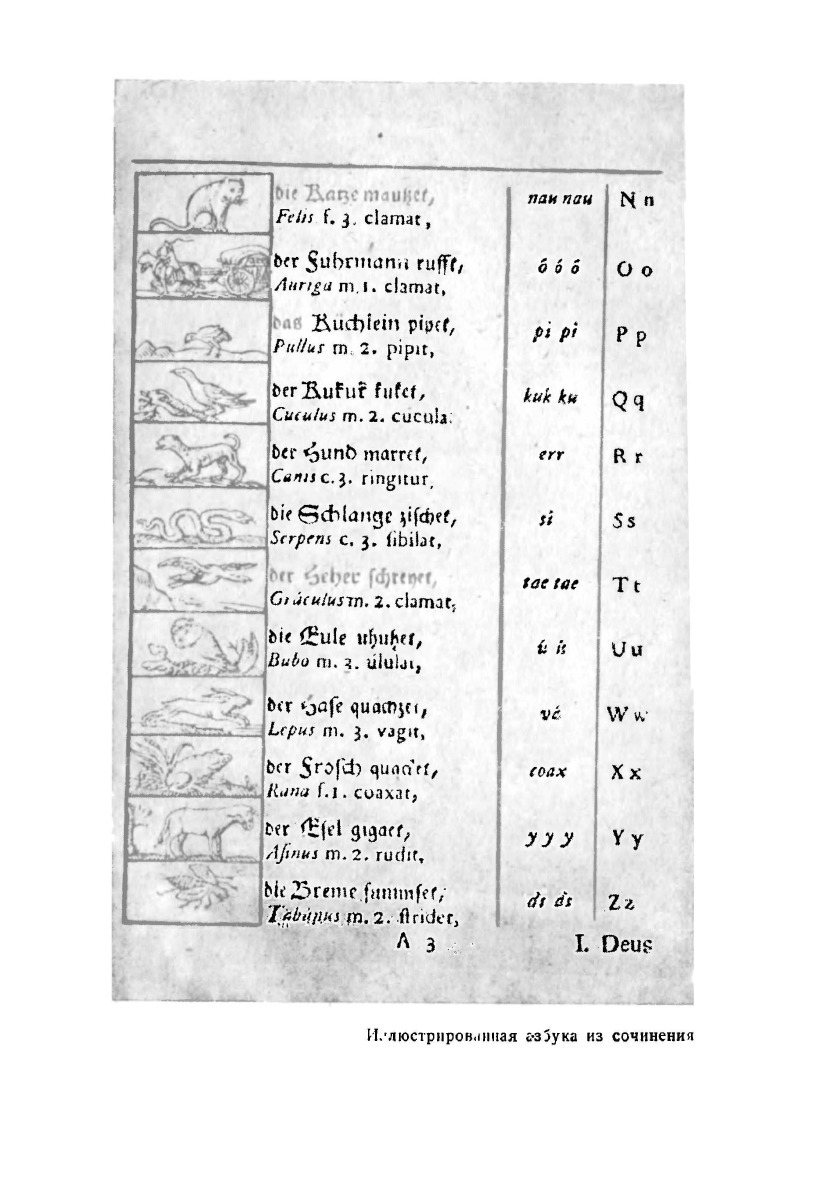 die Katze mautzet, nau nau N n
Felis f. 3. clamat,
der Fuhrmann rufft, ó ó ó O o
Auriga m. 1. clamat,
das Küchlein pipet, pi pi P p
Pullus m. 2. pipit,
der Kukuk kuket, kuk ku Q q
Cuculus m. 2. cucula:
der Hund marret, err R r
Canis c. 3. ringitur,
die Schlange zischet, si S s
Serpens c. 3. sibilat,
der Heher schreyet, tae tae T t
Gráculus m. 2. clamat,
die Eule uhuhet, ú ú U u
Bubo m. 3. úlulat,
der Hase quachzet, vá W w
Lepus m. 3. vagit,
der Frosch quacket, coax X x
Rana f. 1. coaxat,
der Esel gigact, y y y Y y
Asinus m. 2. rudit,
die Breme summset, ds ds Z z
Tabánus m. 2. stridet,
A 3 I. Deus
Иллюстрированная азбука из сочинения